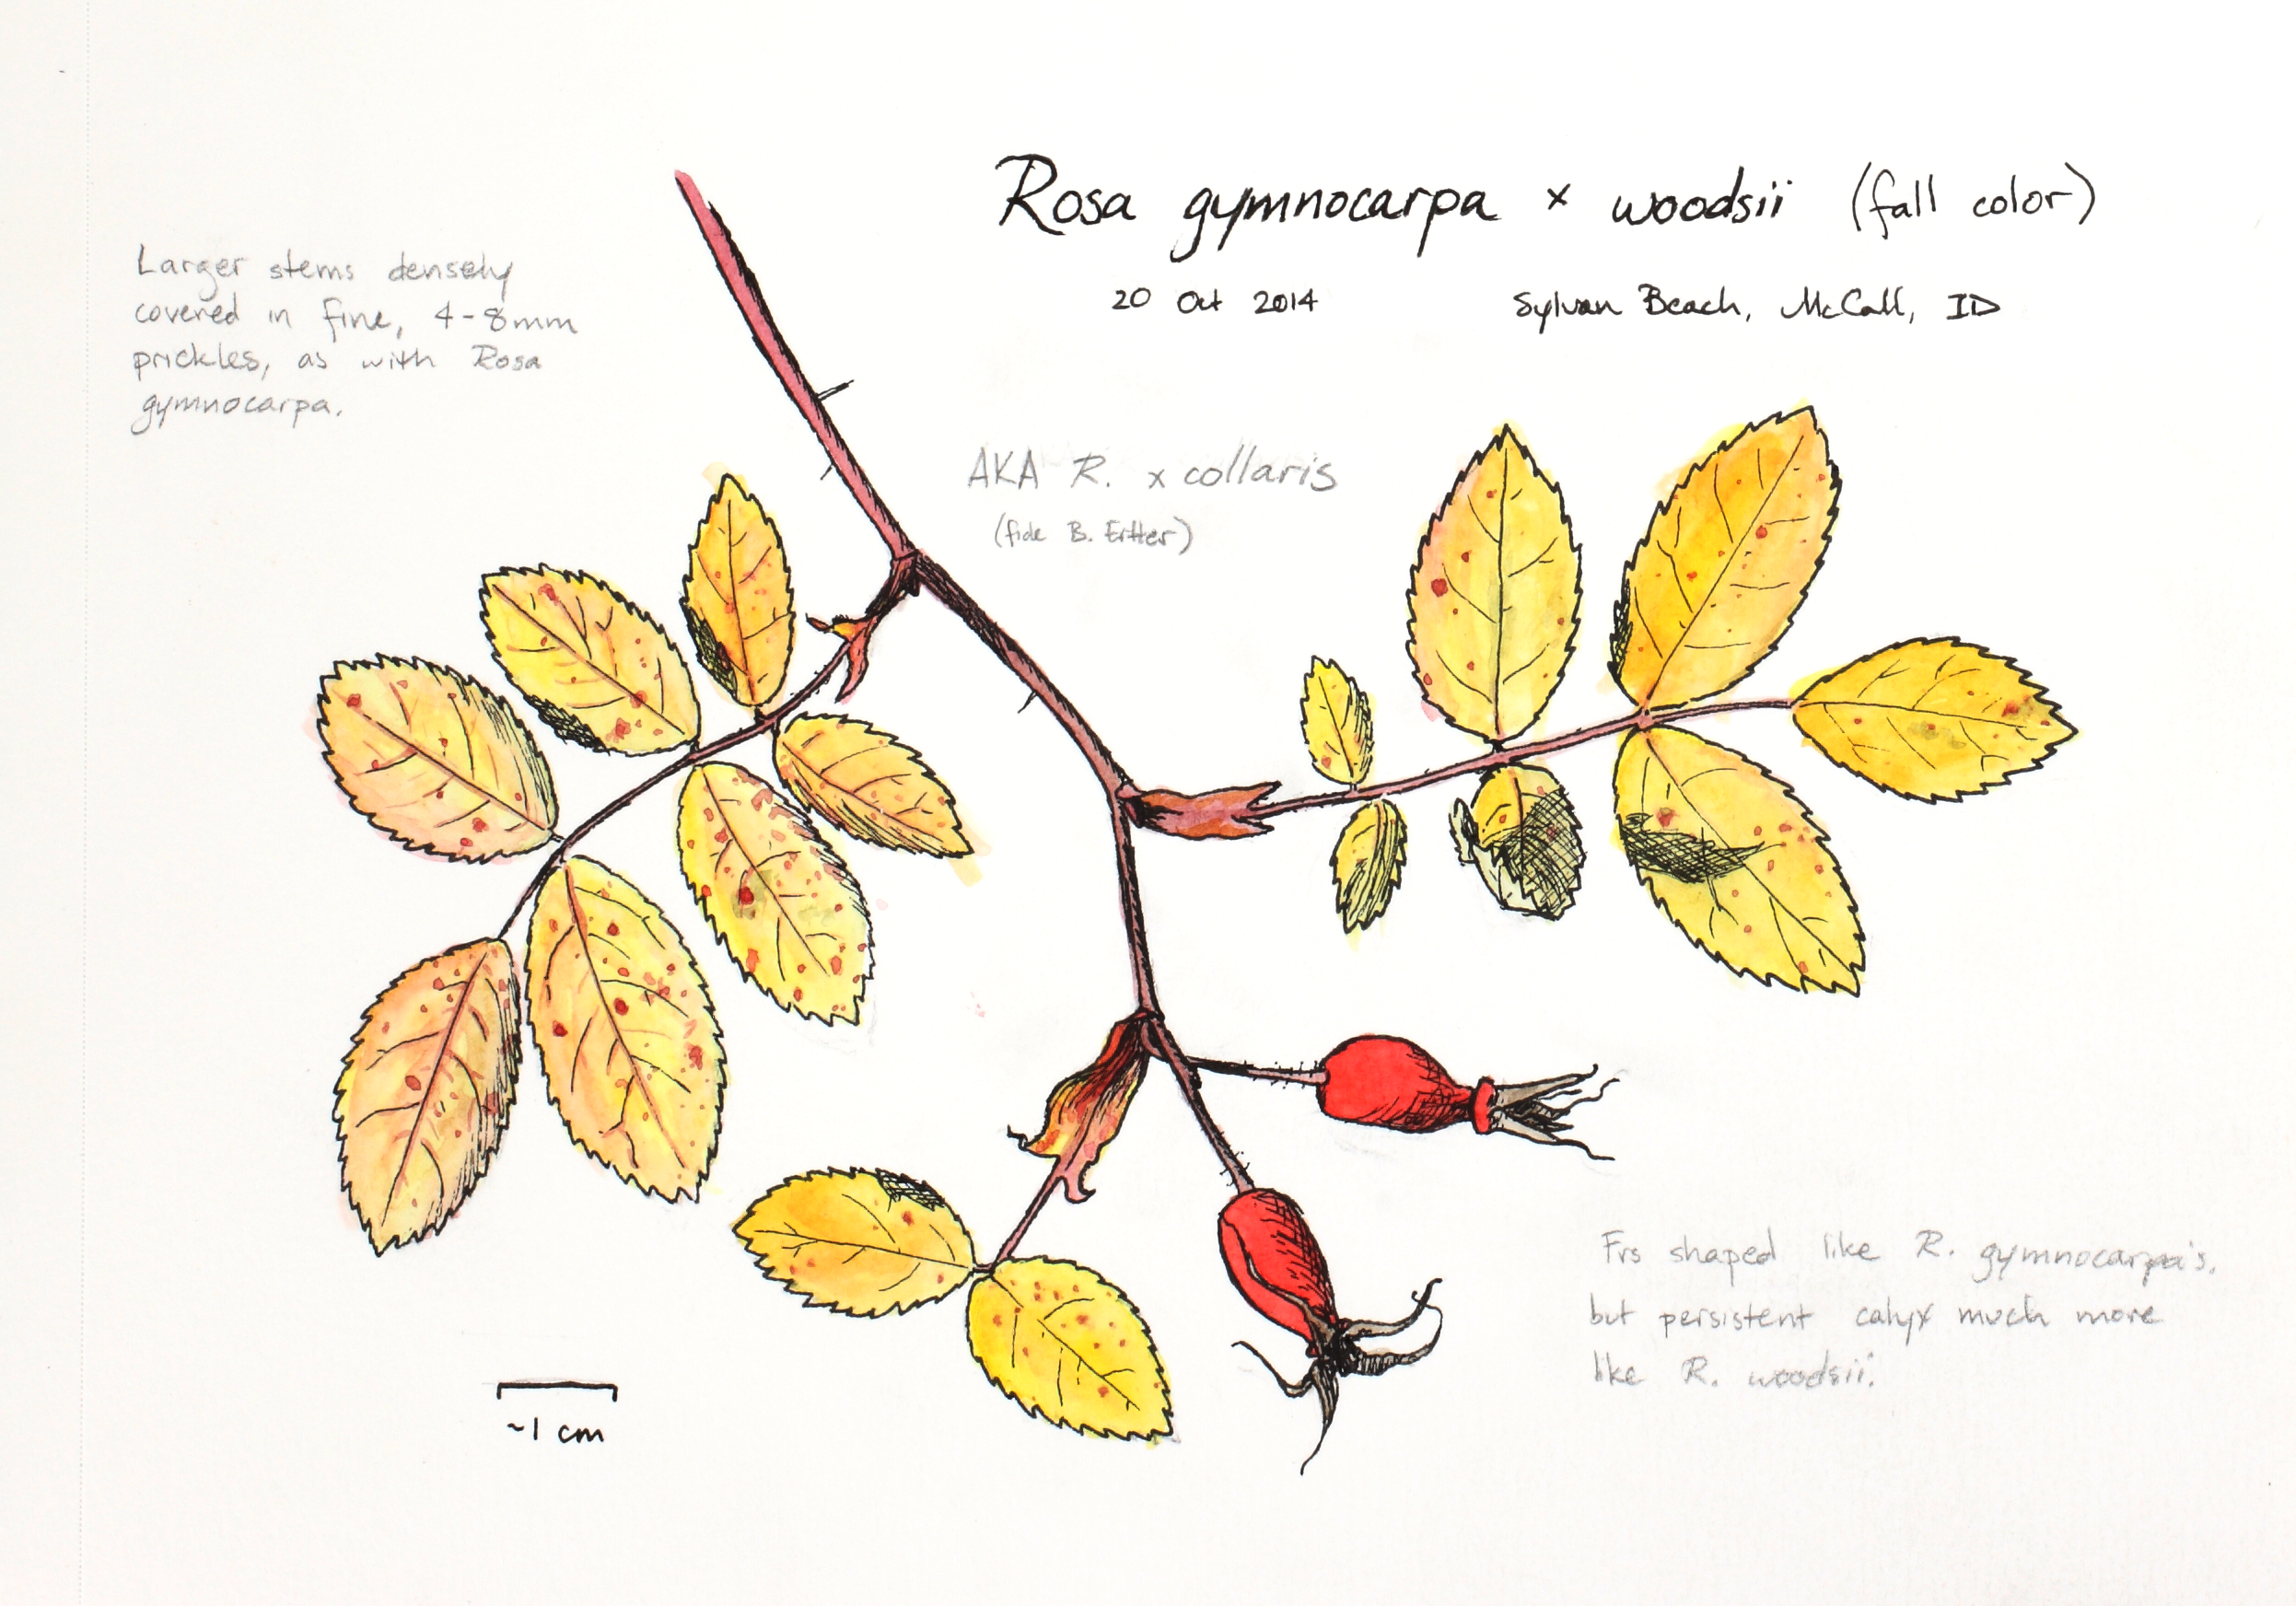 Rosa gymnocarpa × woodsii (fall color)
20 Oct 2014 Sylvan Beach, McCall, ID
Larger stems densely
covered in fine, 4-8mm
prickles, as with Rosa
gymnocarpa.
AKA R. x collaris
(fide B. Ertter)
Frs shaped like R. gymnocarpa's,
but persistent calyx much more
like R. woodsii.
~1 cm